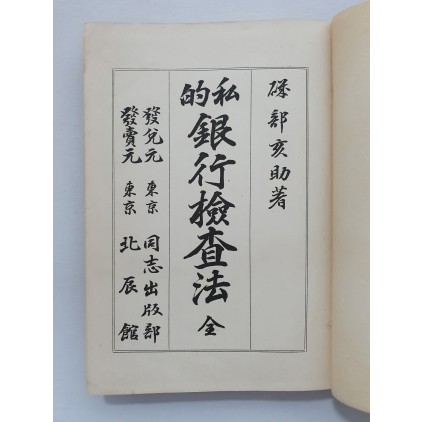 磯部亥助著
私的銀行檢查法 全
發兌元 東京 同志出版部
發賣元 東京 北辰館